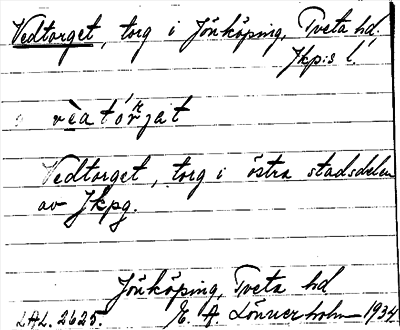 Vedtorget, torg i Jönköping, Tveta hd.
Jkp:s l.
Vedtorget, torg i östra stadsdelen
av Jkpg.
Jönköping, Tveta hd
LAL. 2625. E. A. Lönnerholm 1934.